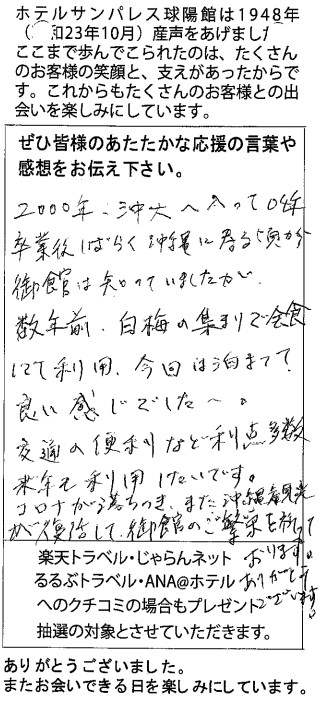 ホテルサンパレス球陽館は1948年
(和23年10月)産声をあげまし
ここまで歩んでこられたのは、たくさん
のお客様の笑顔と、支えがあったからで
す。これからもたくさんのお客様との出
会いを楽しみにしています。
ぜひ皆様のあたたかな応援の言葉や
感想をお伝え下さい。
2000年、沖大へ入って04年
卒業後しばらく沖縄に居る頃から
御館は知っていましたが、
数年前、白梅の集まりで会食
にて利用、今回は泊まって?
良い感じでした〜。
交通の便利など利点多数
来年も利用したいです。
コロナが落ちつき、また沖縄観光
が復活して、御館のご繁栄を祈って
おります。
ありがとう
ございます。
楽天トラベル・じゃらんネット
るるぶトラベル・ANA@ホテル
へのクチコミの場合もプレゼント
抽選の対象とさせていただきます。
ありがとうございました。
またお会いできる日を楽しみにしています。